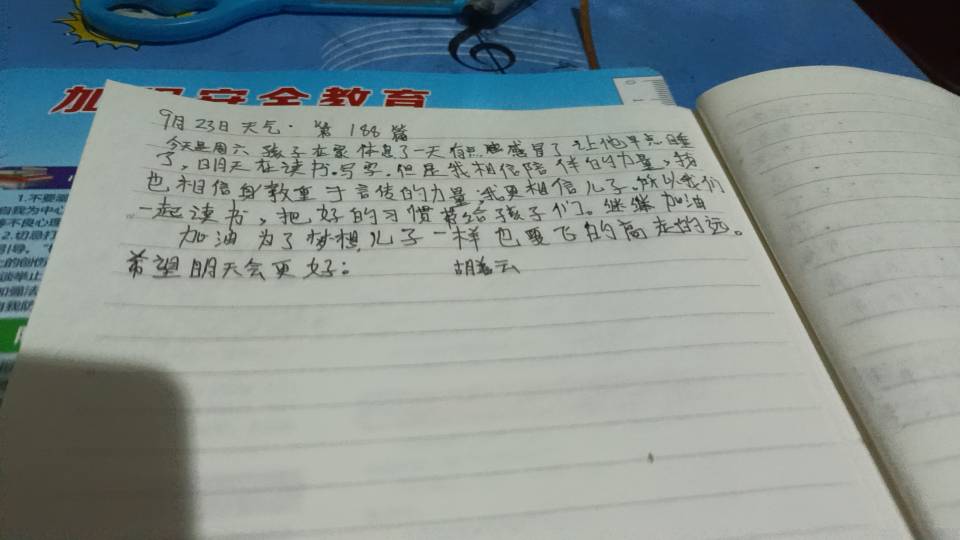 加 安全教育
1.不要
自我为中心
等不良心理
2.切忌打
引导。
上的创伤
谈举止
加强法
自我防
9月23日天气. 第188篇
今天是周六孩子在家休息了一天有点感冒了让他早点睡
了,明天在读书.写字.但是我相信陪伴的力量,我
也相信身教重于言传的力量,我更相信儿子,所以我们
一起读书,把好的习惯带给孩子们。继续加油
加油为了梦想儿子一样也要飞的高走的远。
希望明天会更好!
胡 云